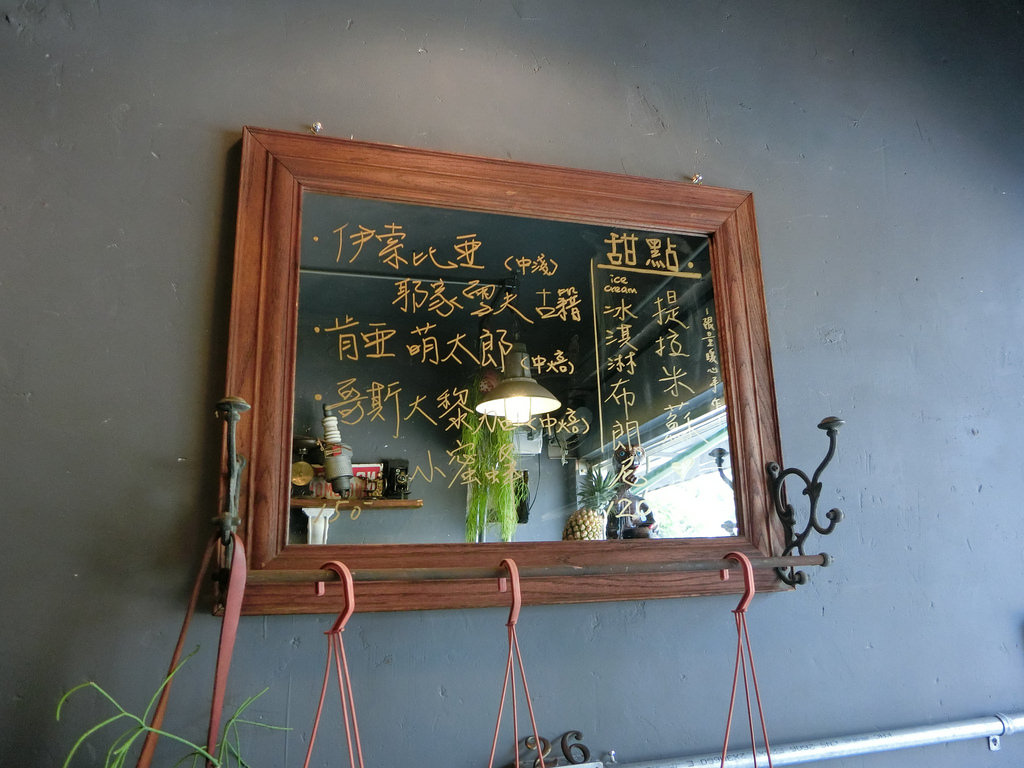 · 伊索比亞 (中淺)
耶家雪夫 古籍
· 肯亞 萌太郎 (中焙)
· 哥斯大黎加 (中焙)
小蜜蜂
150
甜點.
ice
cream
冰淇淋布朗尼
120
提拉米蘇
26